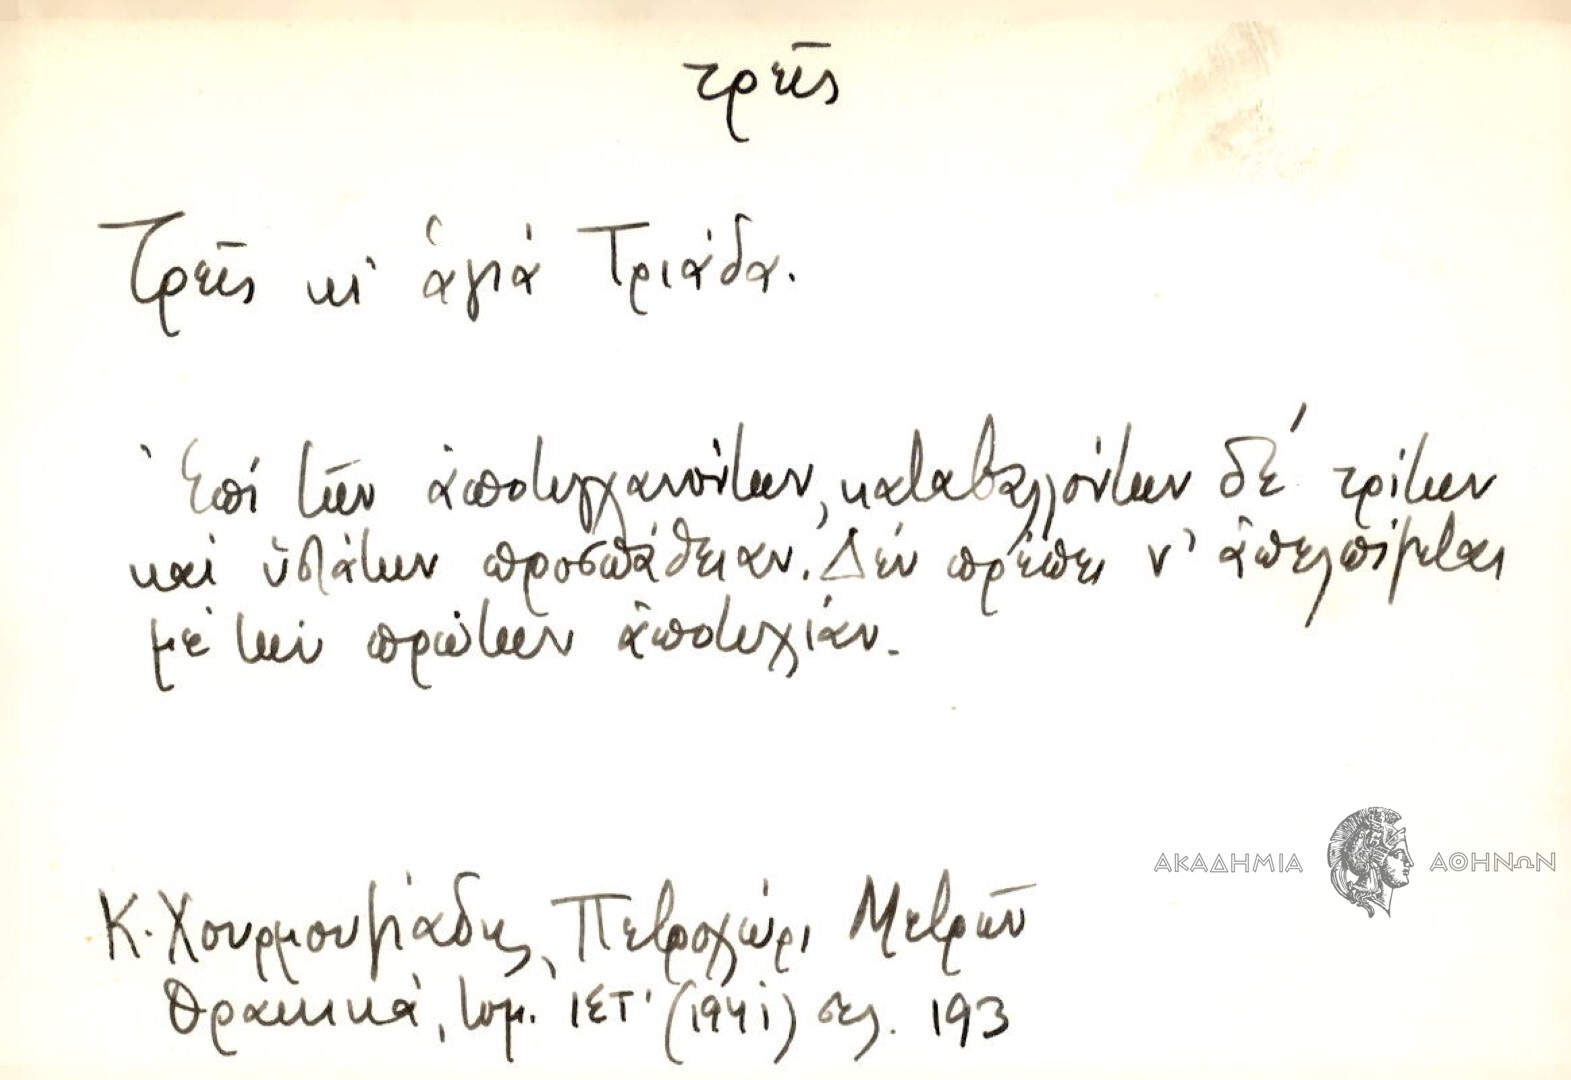 τρεῖς
Τρεῖς κι' ἁγιά Τριάδα.
Ἐπί τῶν ἀποτυγχανόντων, καταβαλλόντων δέ τρίτην
καί ὑστάτην προσπάθειαν. Δέν πρέπει ν' ἀπελπίζεται
μέ τήν πρώτην ἀποτυχίαν.
ΑΚΑΔΗΜΙΑ ΑΘΗΝΩΝ
Κ. Χουρμουζιάδης, Πετροχώρι Μετρῶν
Θρακικά, τομ. ΙΣΤ' (1941) σελ. 193